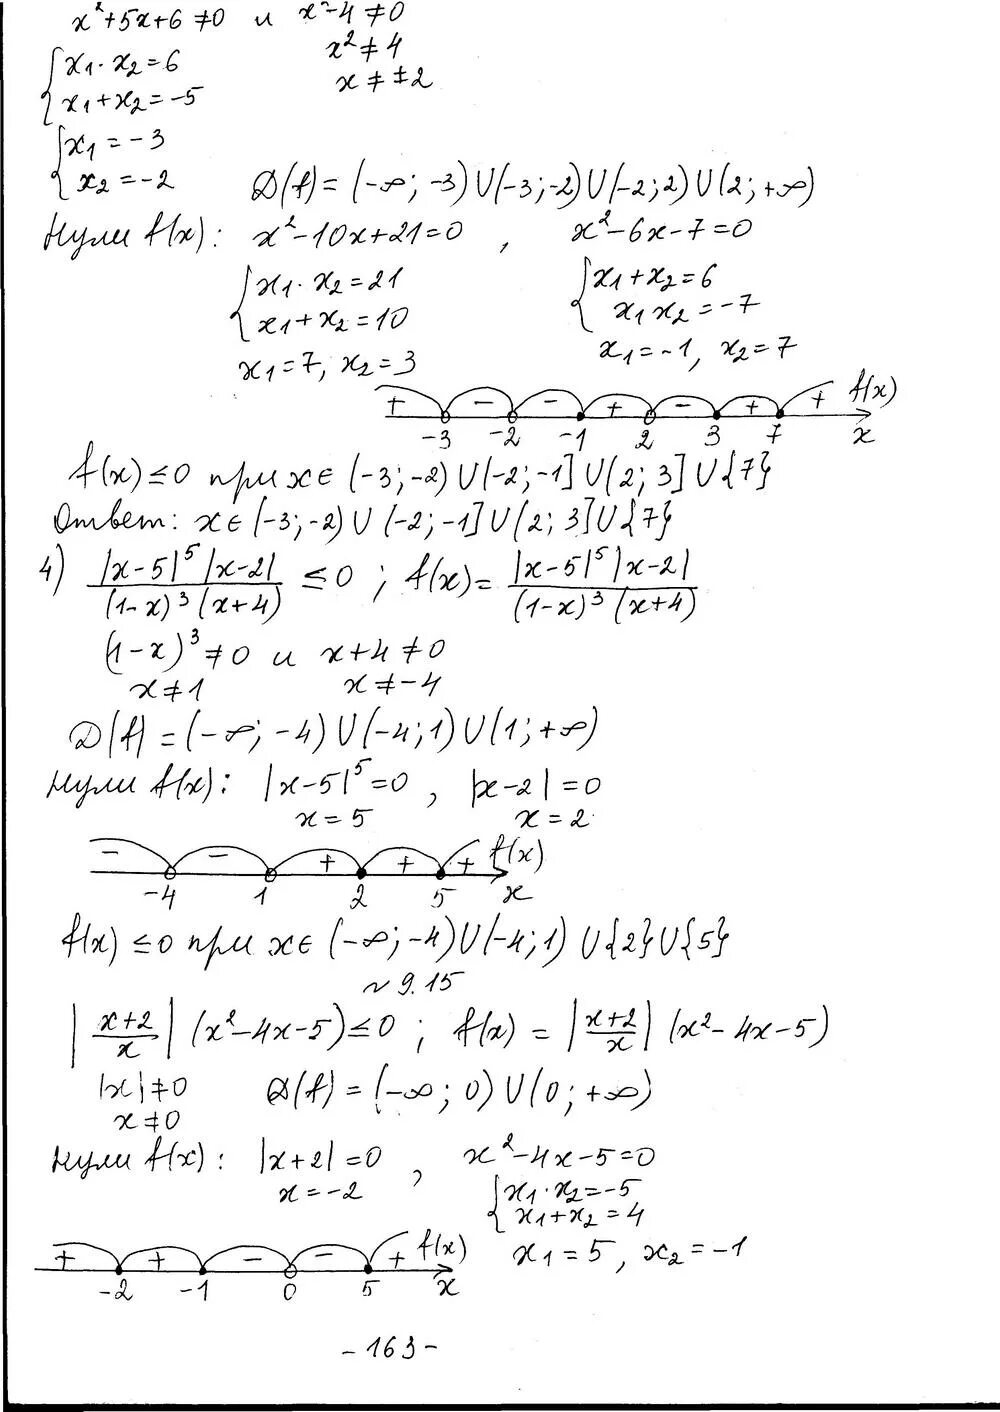 x²+5x+6≠0 и x²-4≠0
{x₁·x₂=6 x²≠4
x₁+x₂=-5 x≠±2
{x₁=-3
x₂=-2 D(f)=(-∞;-3)U(-3;-2)U(-2;2)U(2;+∞)
Нули f(x): x²-10x+21=0, x²-6x-7=0
{x₁·x₂=21 {x₁+x₂=6
x₁+x₂=10 x₁x₂=-7
x₁=7, x₂=3 x₁=-1, x₂=7
+ - - + - + + f(x)
-3 -2 -1 2 3 7 x
f(x)≤0 при x∈(-3;-2)U(-2;-1]U(2;3]U{7}
Ответ: x∈(-3;-2)U(-2;-1]U(2;3]U{7}
4) |x-5|⁵|x-2|/(1-x)³(x+4) ≤0; f(x)=|x-5|⁵|x-2|/(1-x)³(x+4)
(1-x)³≠0 и x+4≠0
x≠1 x≠-4
D(f)=(-∞;-4)U(-4;1)U(1;+∞)
Нули f(x): |x-5|⁵=0, |x-2|=0
x=5 x=2
- - + + + f(x)
-4 1 2 5 x
f(x)≤0 при x∈(-∞;-4)U(-4;1)U{2}U{5}
~9.15
|x+2/x|(x²-4x-5)≤0; f(x)=|x+2/x|(x²-4x-5)
|x|≠0 D(f)=(-∞;0)U(0;+∞)
x≠0
Нули f(x): |x+2|=0, x²-4x-5=0
x=-2 {x₁·x₂=-5
x₁+x₂=4
+ + - - + f(x) x₁=5, x₂=-1
-2 -1 0 5 x
-163-